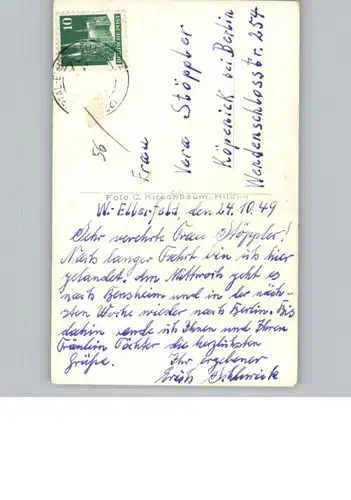 10
DEUTSCHE POST
56
Frau
Vera Stöppler
Köpenick bei Berlin
Wendenschlosstr. 254
Foto C. Kirschbaum, Hilden
W.-Elberfeld, den 24.10.49
Sehr verehrte Frau Stöppler!
Nach langer Fahrt bin ich hier
gelandet. Am Mittwoch geht es
nach Bensheim und in der näch-
sten Woche wieder nach Berlin. Bis
dahin sende ich Ihnen und Ihren
Fräulein Töchter die herzlichsten
Grüße. Ihr ergebener
Erich